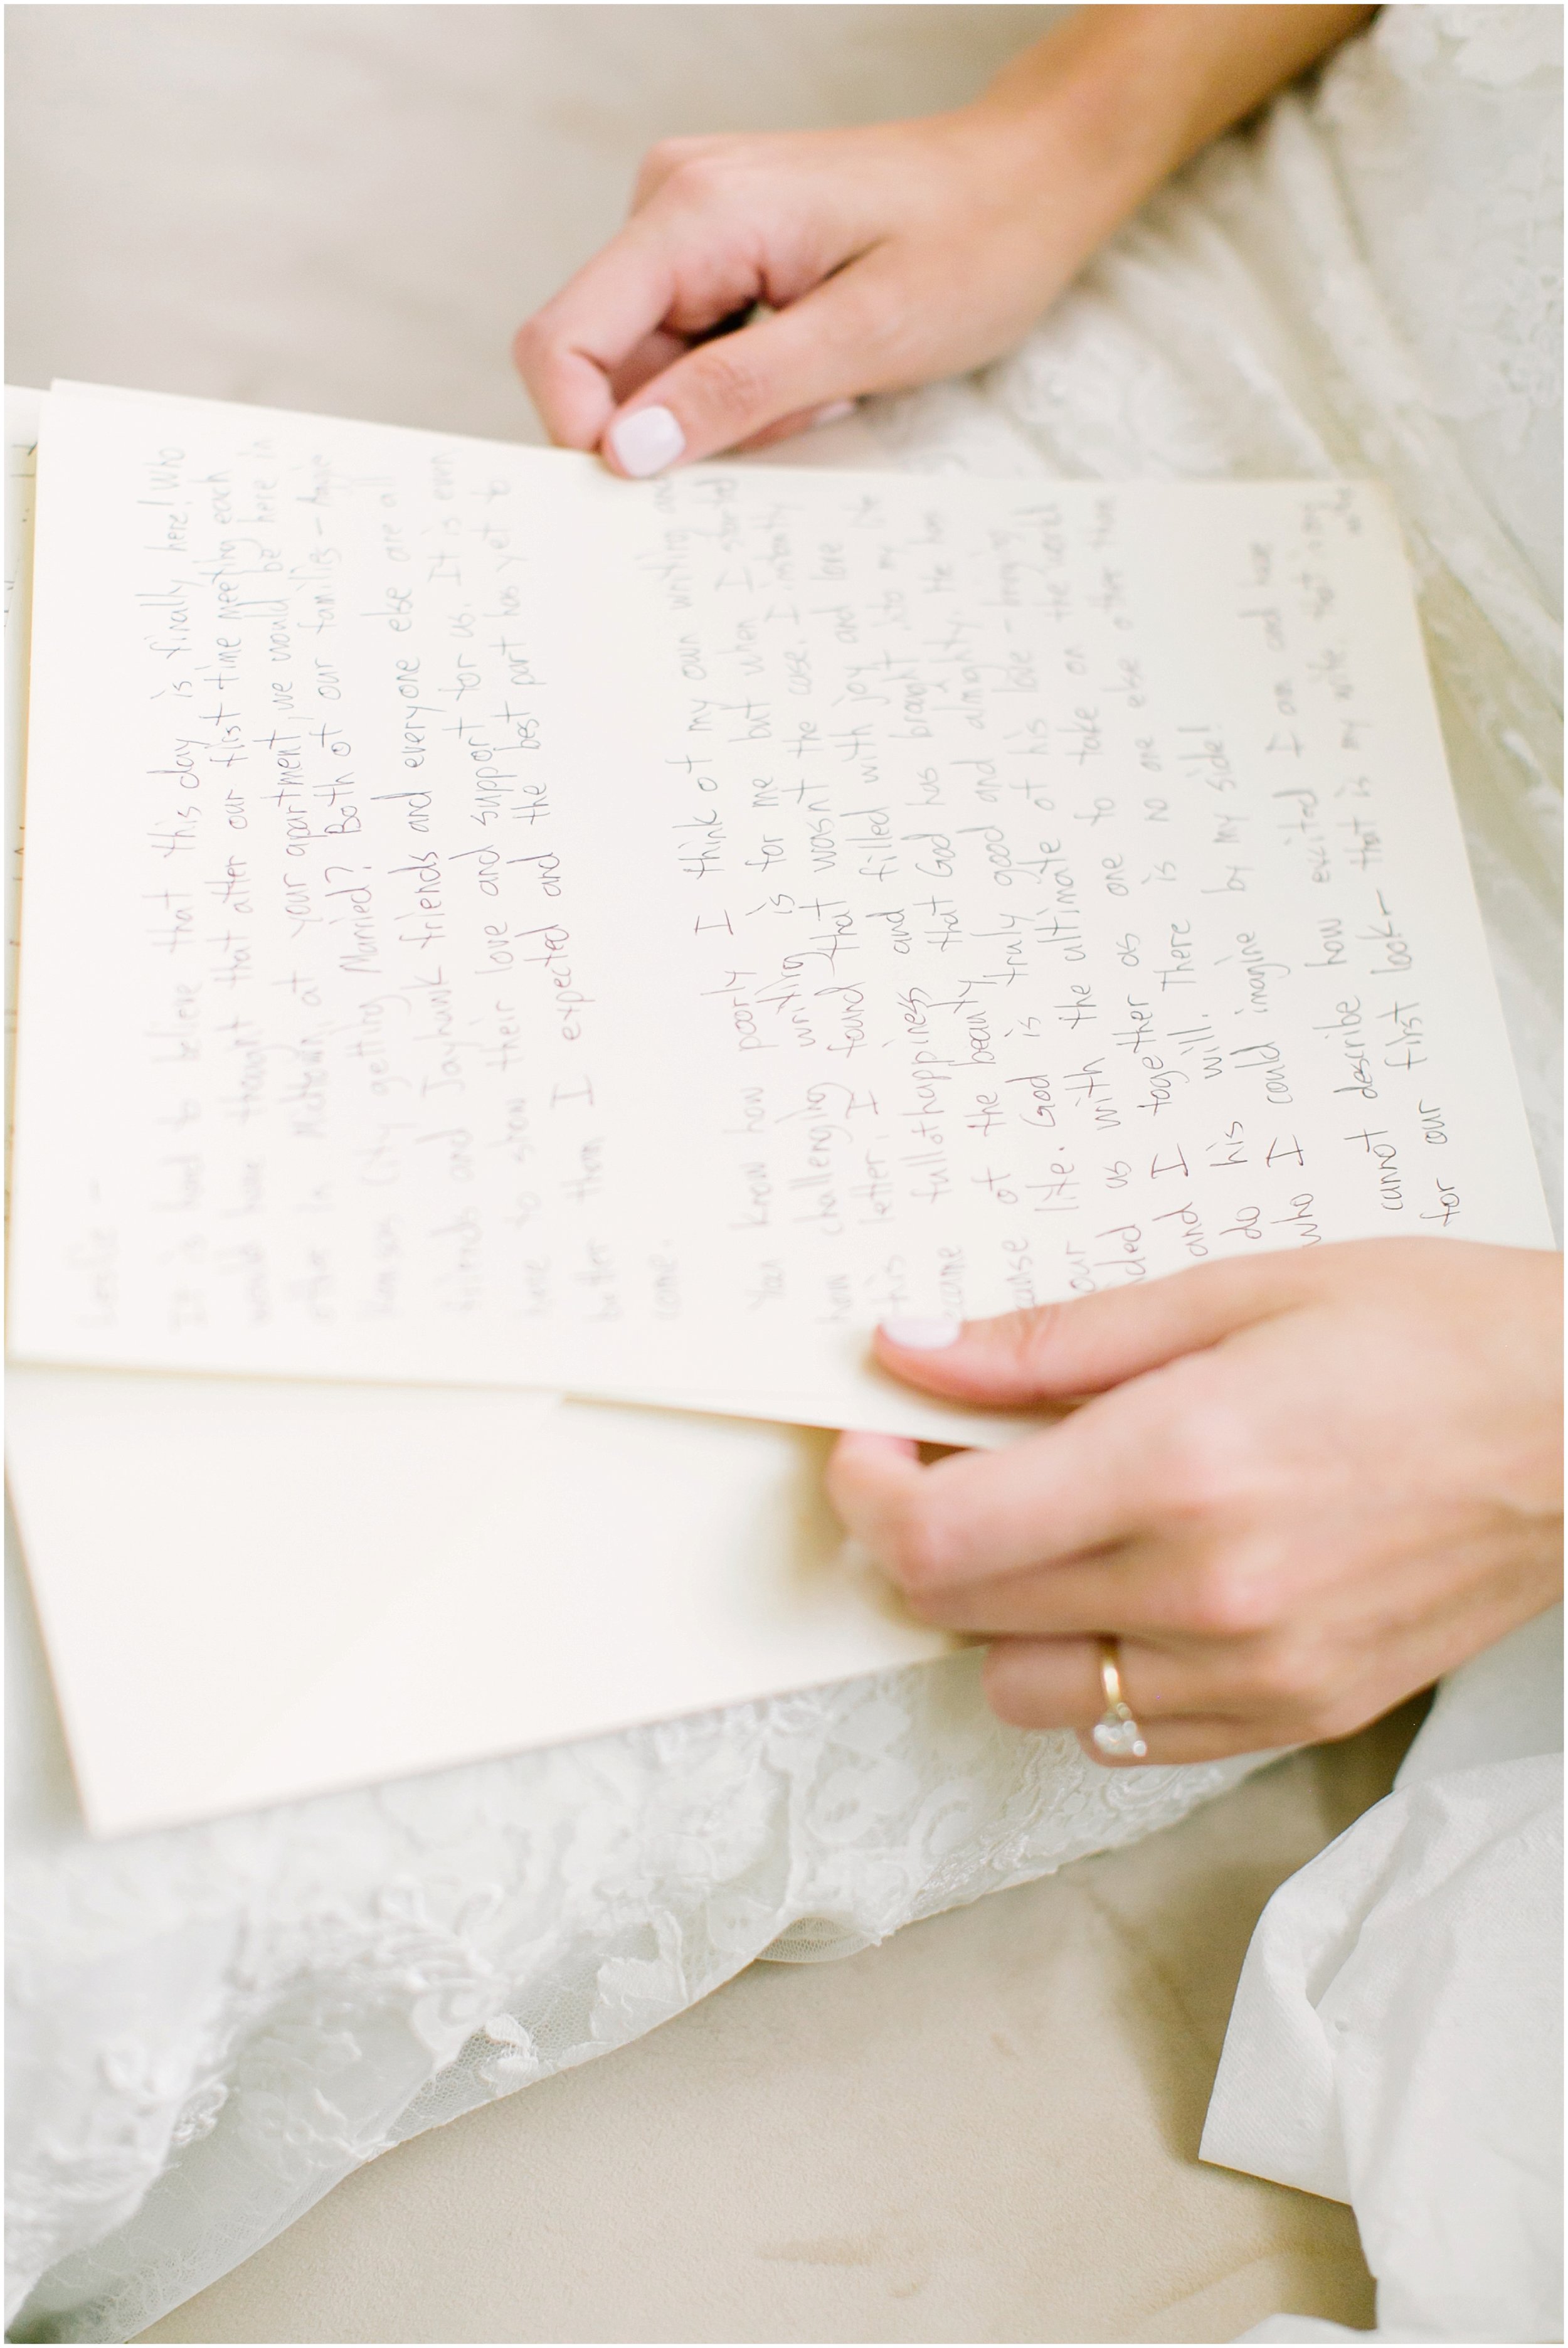 Leslie -
It is hard to believe that this day is finally here! Who
would have thought that after our first time meeting each
other in Midtown, at your apartment, we would be here in
Kansas City getting Married? Both of our families -
friends and Jayhawk friends and everyone else are all
here to show their love and support for us. It is even
better than I expected and the best part has yet to
come.
You know how poorly I think of my own writing and
how challenging writing is for me but when I started
this letter, I found that wasn't the case. I instantly
became full of happiness and filled with joy and love
because of the beauty that God has brought into my life
our life. God is truly good and almighty. He has
us with the ultimate of his love -
and I together as one to take on the world
do his will. There is no one else other than
who I could imagine by my side!
cannot describe how excited I am and have
for our first look - that is my wife, that is my
wife